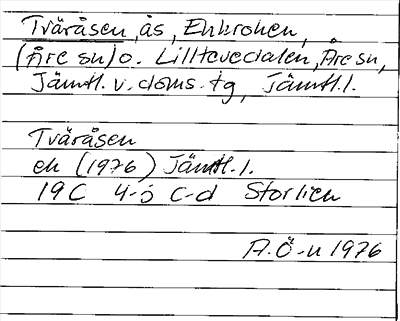 Tväråsen, ås, Enkronen,
(Åre sn) o. Lilltevedalen, Åre sn,
Jämtl. v. doms. tg, Jämtl. l.
Tväråsen
ek (1976) Jämtl. l.
19C 4-5 c-d Storlien
A.Ö-n 1976